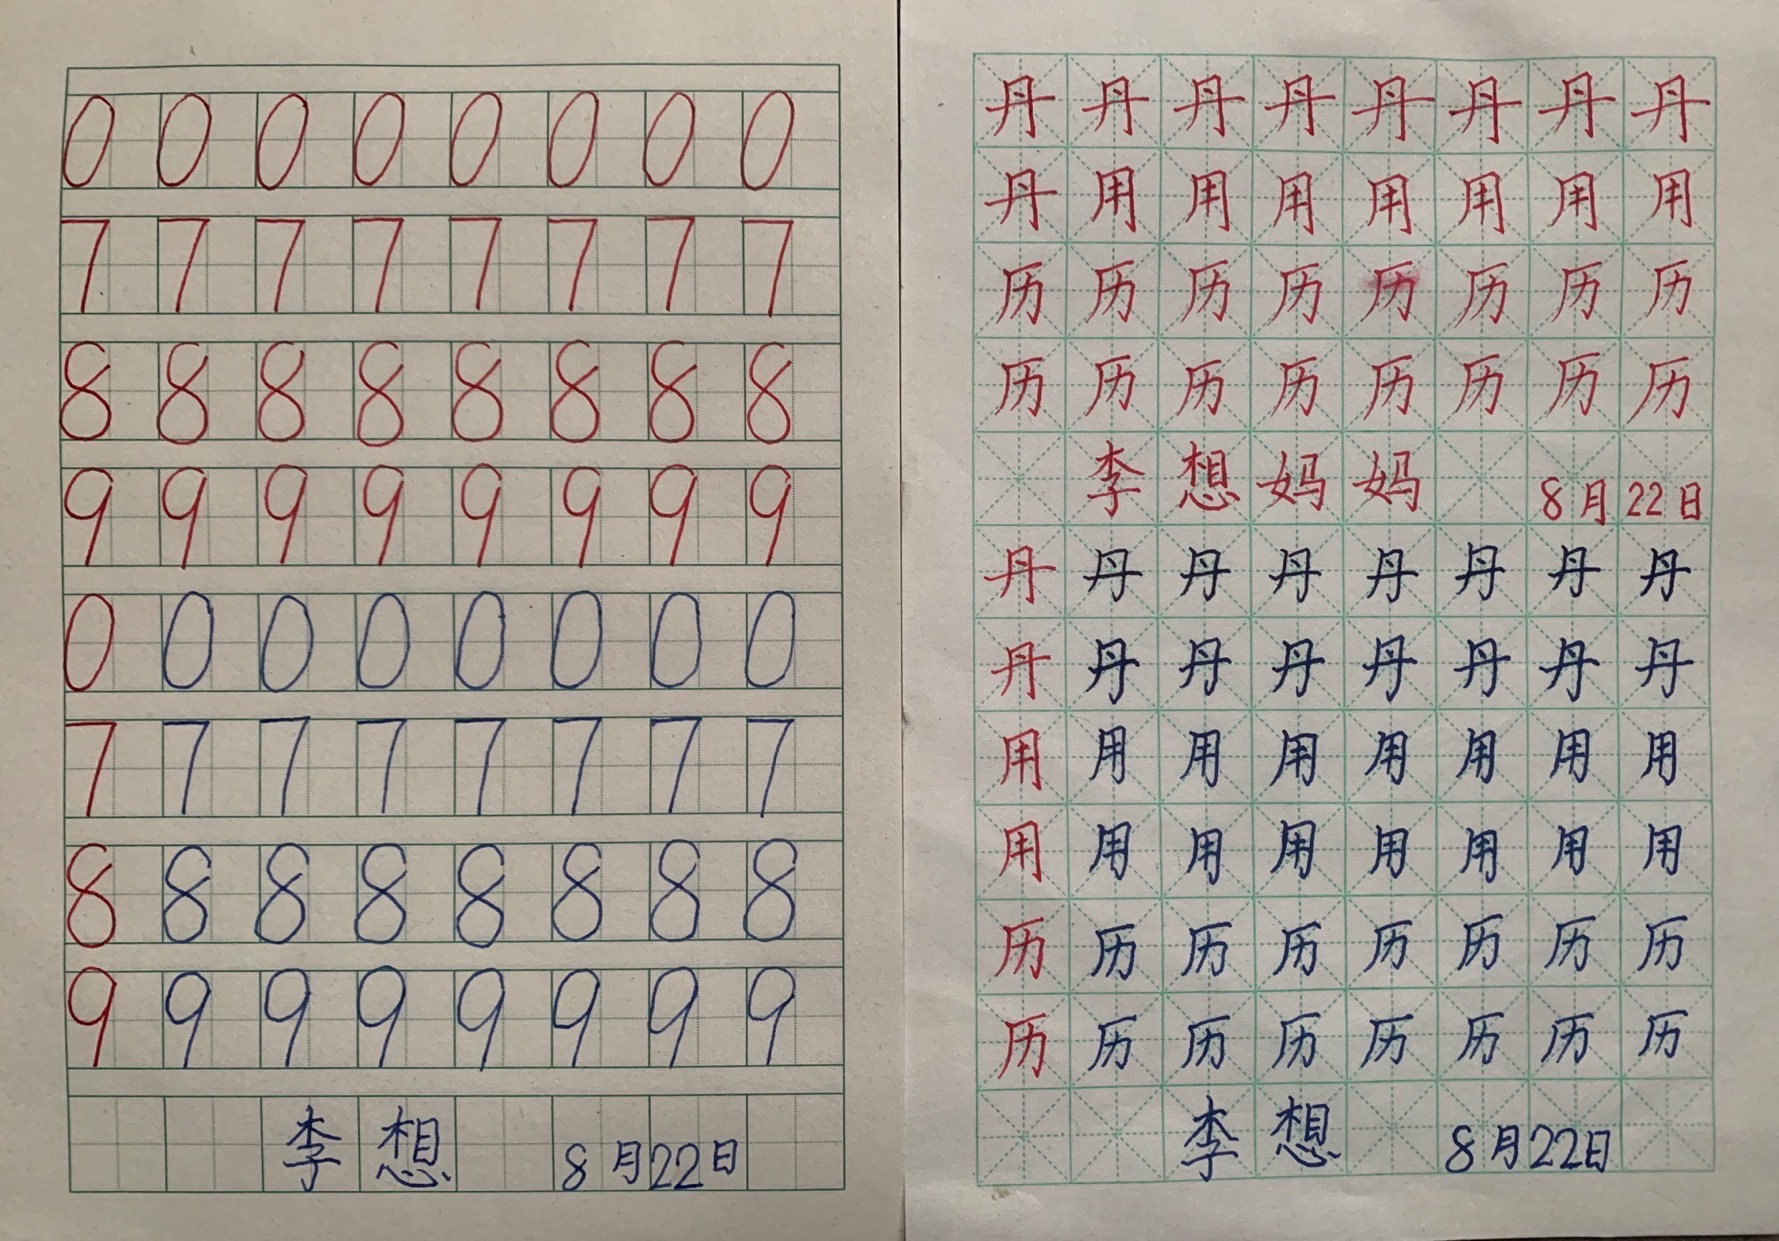 0 0 0 0 0 0 0 0
7 7 7 7 7 7 7 7
8 8 8 8 8 8 8 8
9 9 9 9 9 9 9 9
0 0 0 0 0 0 0 0
7 7 7 7 7 7 7 7
8 8 8 8 8 8 8 8
9 9 9 9 9 9 9 9
李想 8月22日
丹丹丹丹丹丹丹丹
丹用用用用用用用
历历历历历历历历
历历历历历历历历
李想妈妈 8月22日
丹丹丹丹丹丹丹丹
丹丹丹丹丹丹丹丹
用用用用用用用用
用用用用用用用用
历历历历历历历历
历历历历历历历历
李想 8月22日